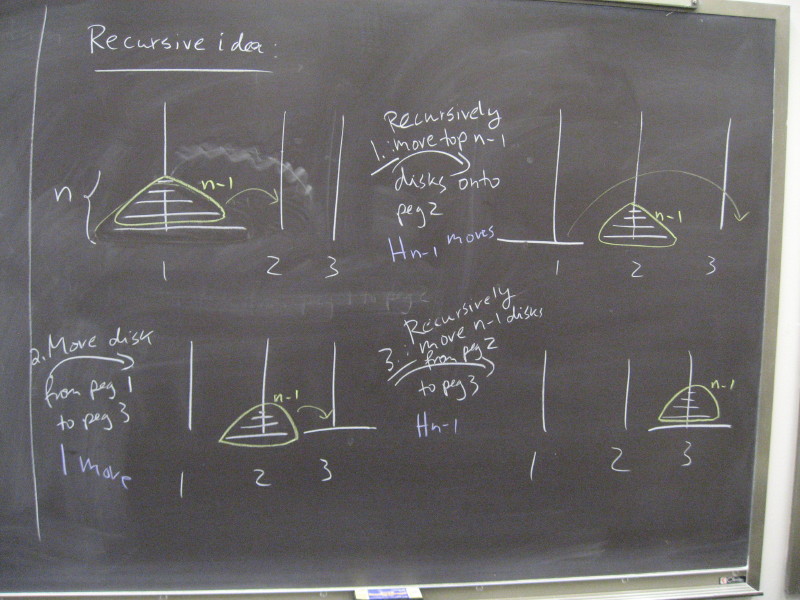 Recursive idea:
n
n-1
1 2 3
Recursively
1. move top n-1
disks onto
peg 2
Hn-1 moves
n-1
1 2 3
2. Move disk
from peg 1
to peg 3
1 move
n-1
1 2 3
Recursively
3. move n-1 disks
from peg 2
to peg 3
Hn-1
n-1
1 2 3